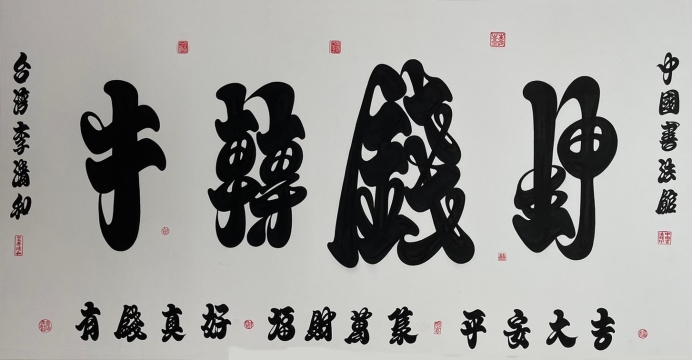 牛轉錢坤
中國書法館
台灣李和
有錢真好 福財萬集 平安大吉